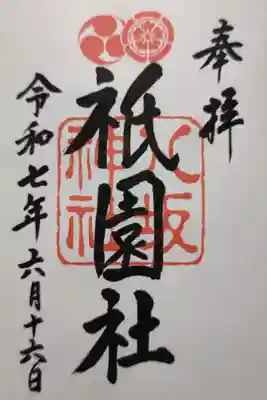 奉拝
祇園社
八坂神社
令和七年六月十六日